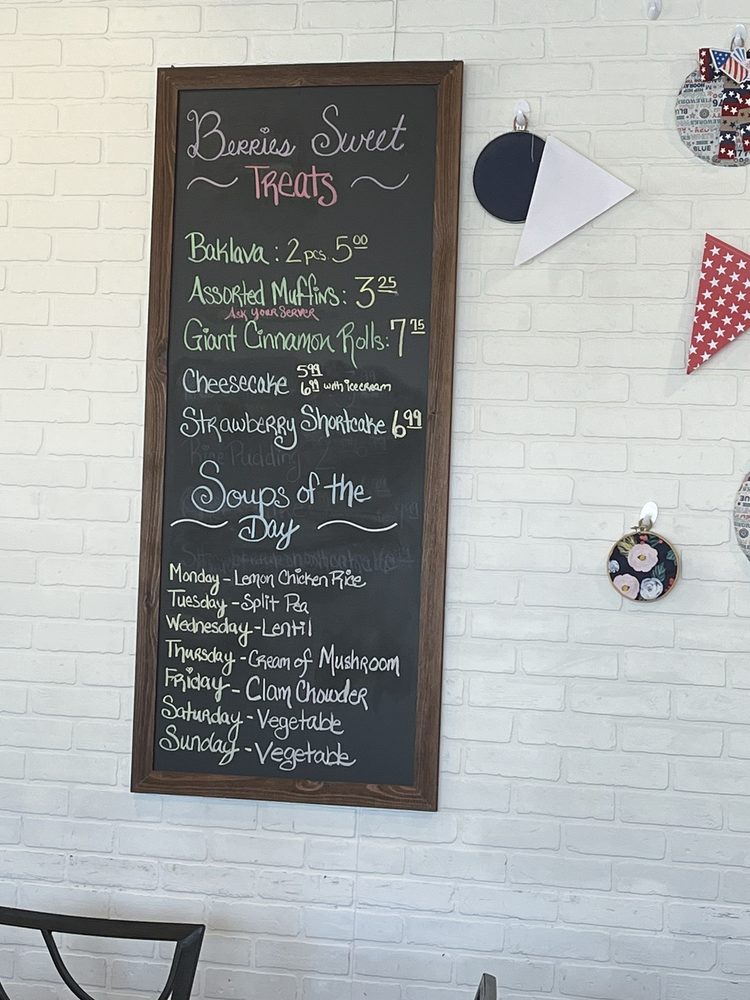 Berries Sweet
Treats
Baklava : 2 pcs 5.00
Assorted Muffins: 3.25
Ask Your Server
Giant Cinnamon Rolls: 7.75
Cheesecake 5.99
6.99 with ice cream
Strawberry Shortcake 6.99
Rice Pudding
Soups of the
Day
Monday - Lemon Chicken Rice
Tuesday - Split Pea
Wednesday - Lentil
Thursday - Cream of Mushroom
Friday - Clam Chowder
Saturday - Vegetable
Sunday - Vegetable